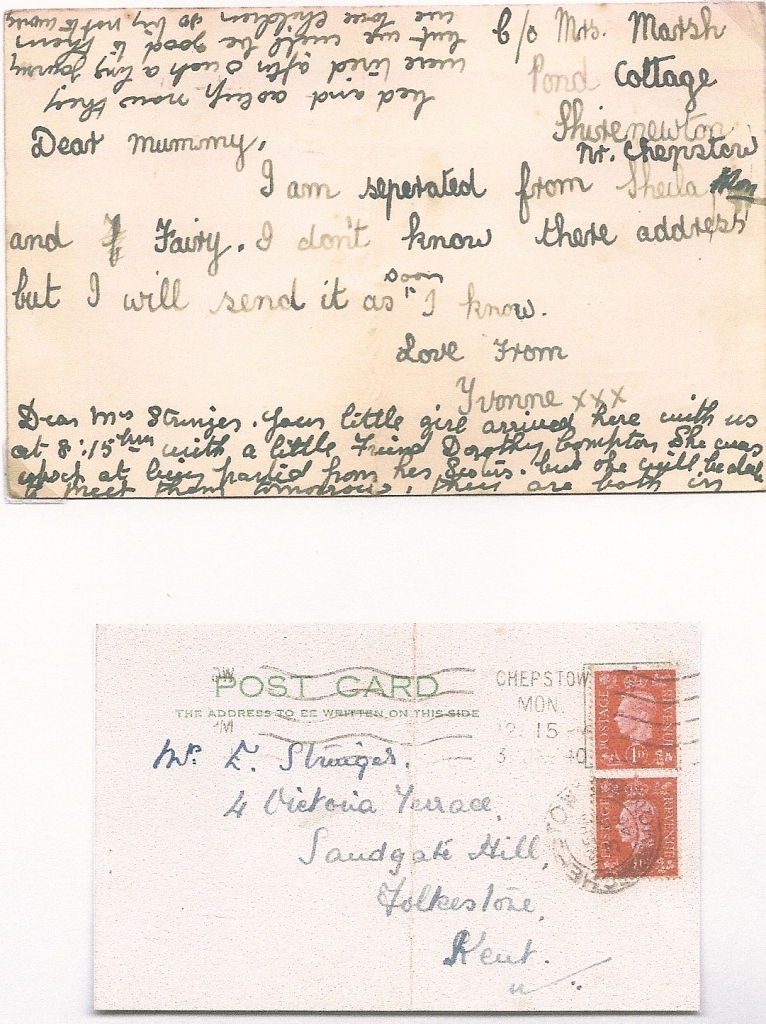 C/o Mrs. Marsh
Pond Cottage
Shirenewton
nr. Chepstow
Mon
Dear Mummy,
I am seperated from Sheila
and Fairy. I don't know there address
but I will send it as soon
as I know.
Love From
Yvonne xxx
Dear Mrs Strunjes. Your little girl arrived here with us
at 8:15 with a little Friend Dorothy Compton She was
upset at being parted from her Sisters. but she will be able
to meet them tomorrow, they are both in
bed and asleep now they
were tired after such a long journey
but we will be good to them
we love children so try not to worry
POST CARD
THE ADDRESS TO BE WRITTEN ON THIS SIDE
CHEPSTOW
MON.
12. 15
40
POSTAGE
REVENUE
1D
POSTAGE
REVENUE
CHEPSTOW
Mrs. E. Strunjes.
4 Victoria Terrace,
Sandgate Hill,
Folkestone,
Kent.